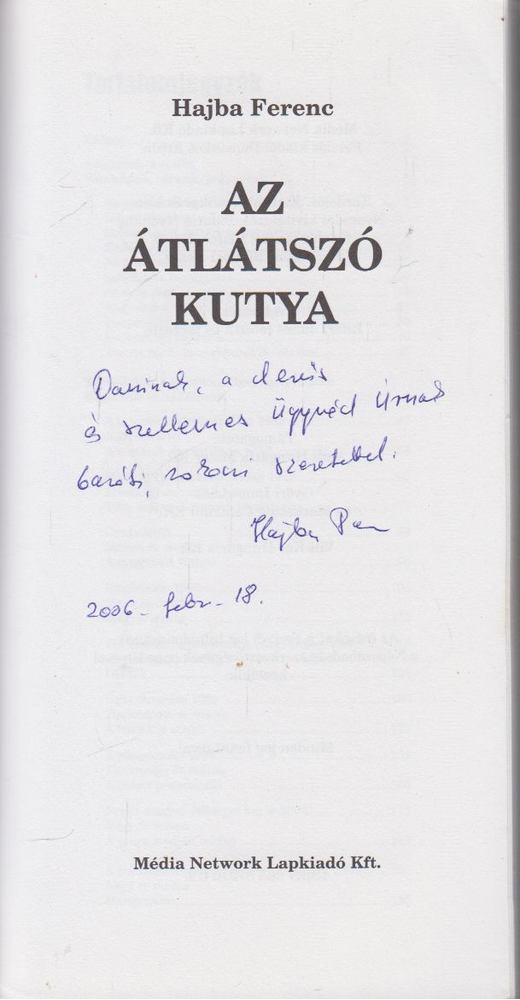 Hajba Ferenc
AZ
ÁTLÁTSZÓ
KUTYA
Daninak, a
és szellemes ügyvéd úrnak
baráti, rokoni szeretettel.
Hajba
2006. febr. 18.
Média Network Lapkiadó Kft.